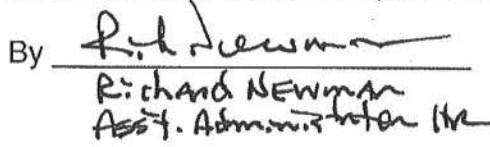 By R.L. Newman
Richard Newman
Ass't. Administrator HR